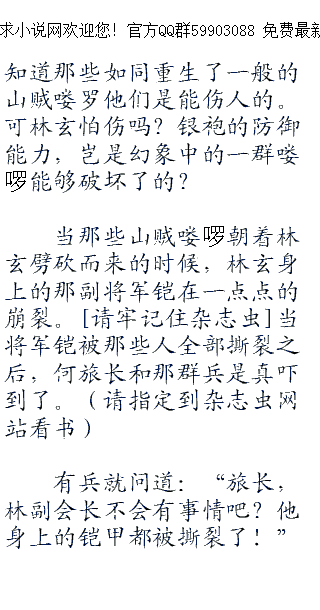 求小说网欢迎您！官方QQ群59903088 免费最新
知道那些如同重生了一般的
山贼喽罗他们是能伤人的。
可林玄怕伤吗？银袍的防御
能力，岂是幻象中的一群喽
啰能够破坏了的？
当那些山贼喽啰朝着林
玄劈砍而来的时候，林玄身
上的那副将军铠在一点点的
崩裂。[请牢记住杂志虫]当
将军铠被那些人全部撕裂之
后，何旅长和那群兵是真吓
到了。（请指定到杂志虫网
站看书）
有兵就问道：“旅长，
林副会长不会有事情吧？他
身上的铠甲都被撕裂了！”